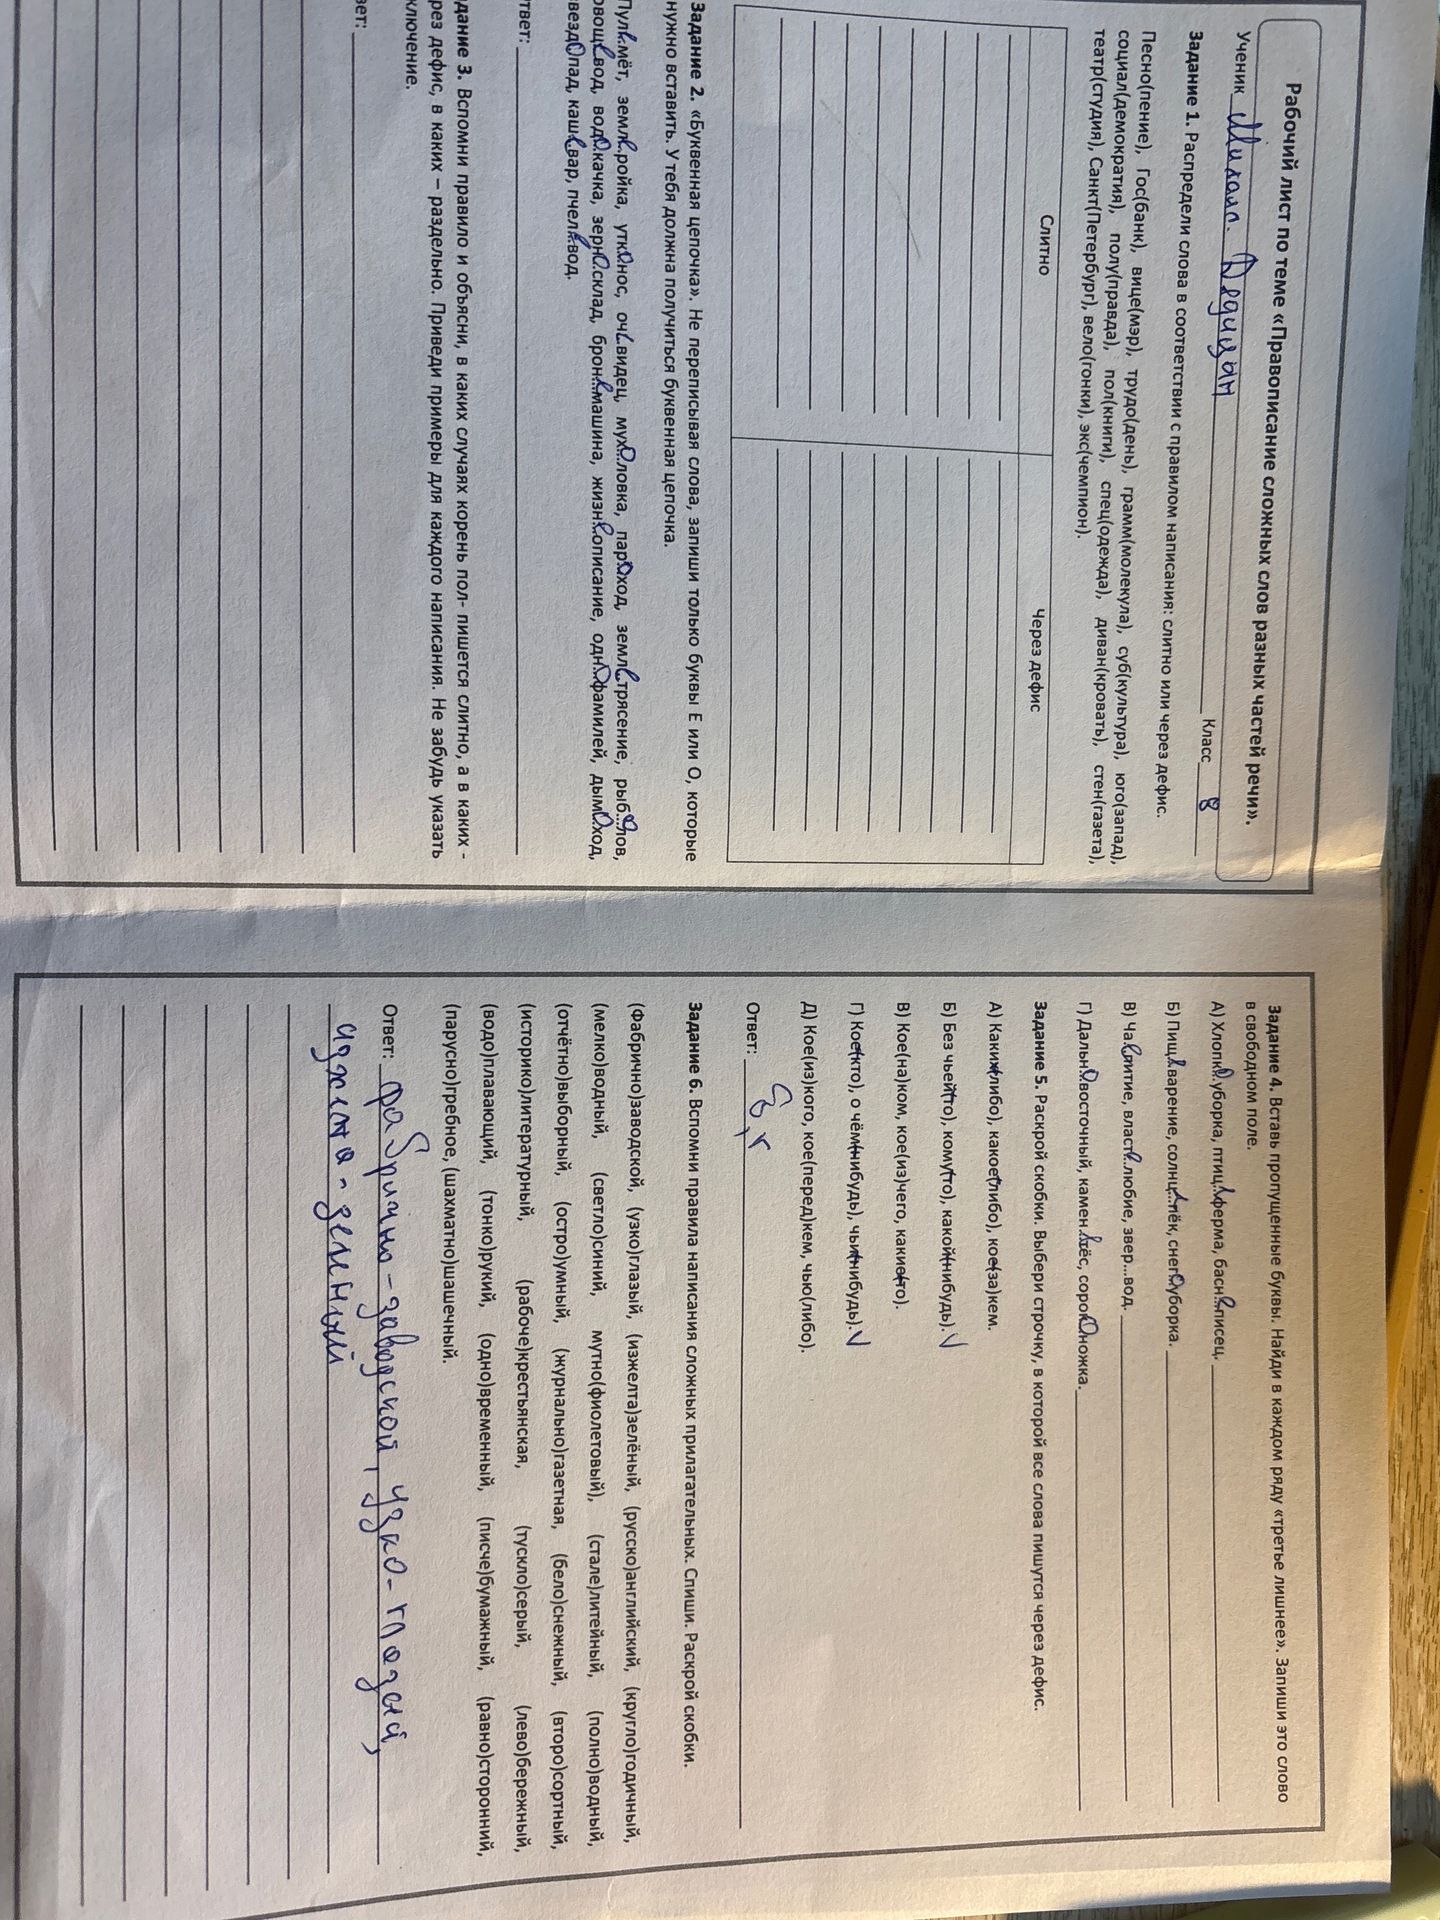 Рабочий лист по теме «Правописание сложных слов разных частей речи».
Ученик Дедицын Класс 8
Задание 1. Распредели слова в соответствии с правилом написания: слитно или через дефис.
Песно(пение), Гос(банк), вице(мэр), трудо(день), грамм(молекула), суб(культура), юго(запад),
социал(демократия), полу(правда), пол(книги), спец(одежда), диван(кровать), стен(газета),
театр(студия), Санкт(Петербург), вело(гонки), экс(чемпион).
Слитно Через дефис
Задание 2. «Буквенная цепочка». Не переписывая слова, запиши только буквы Е или О, которые
нужно вставить. У тебя должна получиться буквенная цепочка.
Пулемёт, землеройка, утконос, очевидец, мухоловка, пароход, землетрясение, рыболов,
овощевод, водокачка, зерносклад, бронемашина, жизнеописание, однофамилей, дымоход,
вездопад, кашевар, пчелевод.
твет:
дание 3. Вспомни правило и объясни, в каких случаях корень пол- пишется слитно, а в каких -
рез дефис, в каких – раздельно. Приведи примеры для каждого написания. Не забудь указать
ключение.
вет:
Задание 4. Вставь пропущенные буквы. Найди в каждом ряду «третье лишнее». Запиши это слово
в свободном поле.
А) Хлопкоуборка, птицеферма, баснеписец.
Б) Пищеварение, солнцепёк, снегоуборка.
В) Чаепитие, властелюбие, звер...вод.
Г) Дальновосточный, каменетёс, сороконожка.
Задание 5. Раскрой скобки. Выбери строчку, в которой все слова пишутся через дефис.
А) Каких(либо), какое(либо), кое(за)кем.
Б) Без чьей(то), кому(то), какой(нибудь). V
В) Кое(на)ком, кое(из)чего, какие(то).
Г) Кое(кто), о чём(нибудь), чьи(нибудь). V
Д) Кое(из)кого, кое(перед)кем, чью(либо).
Ответ: Б, г
Задание 6. Вспомни правила написания сложных прилагательных. Спиши. Раскрой скобки.
(Фабрично)заводской, (узко)глазый, (изжелта)зелёный, (русско)английский, (кругло)годичный,
(мелко)водный, (светло)синий, мутно(фиолетовый), (стале)литейный, (полно)водный,
(отчётно)выборный, (остро)умный, (журнально)газетная, (бело)снежный, (второ)сортный,
(историко)литературный, (рабоче)крестьянская, (тускло)серый, (лево)бережный,
(водо)плавающий, (тонко)рукий, (одно)временный, (писче)бумажный, (равно)сторонний,
(парусно)гребное, (шахматно)шашечный.
Ответ: фабрично-заводской, узко-глазый,
изжелта-зелёный